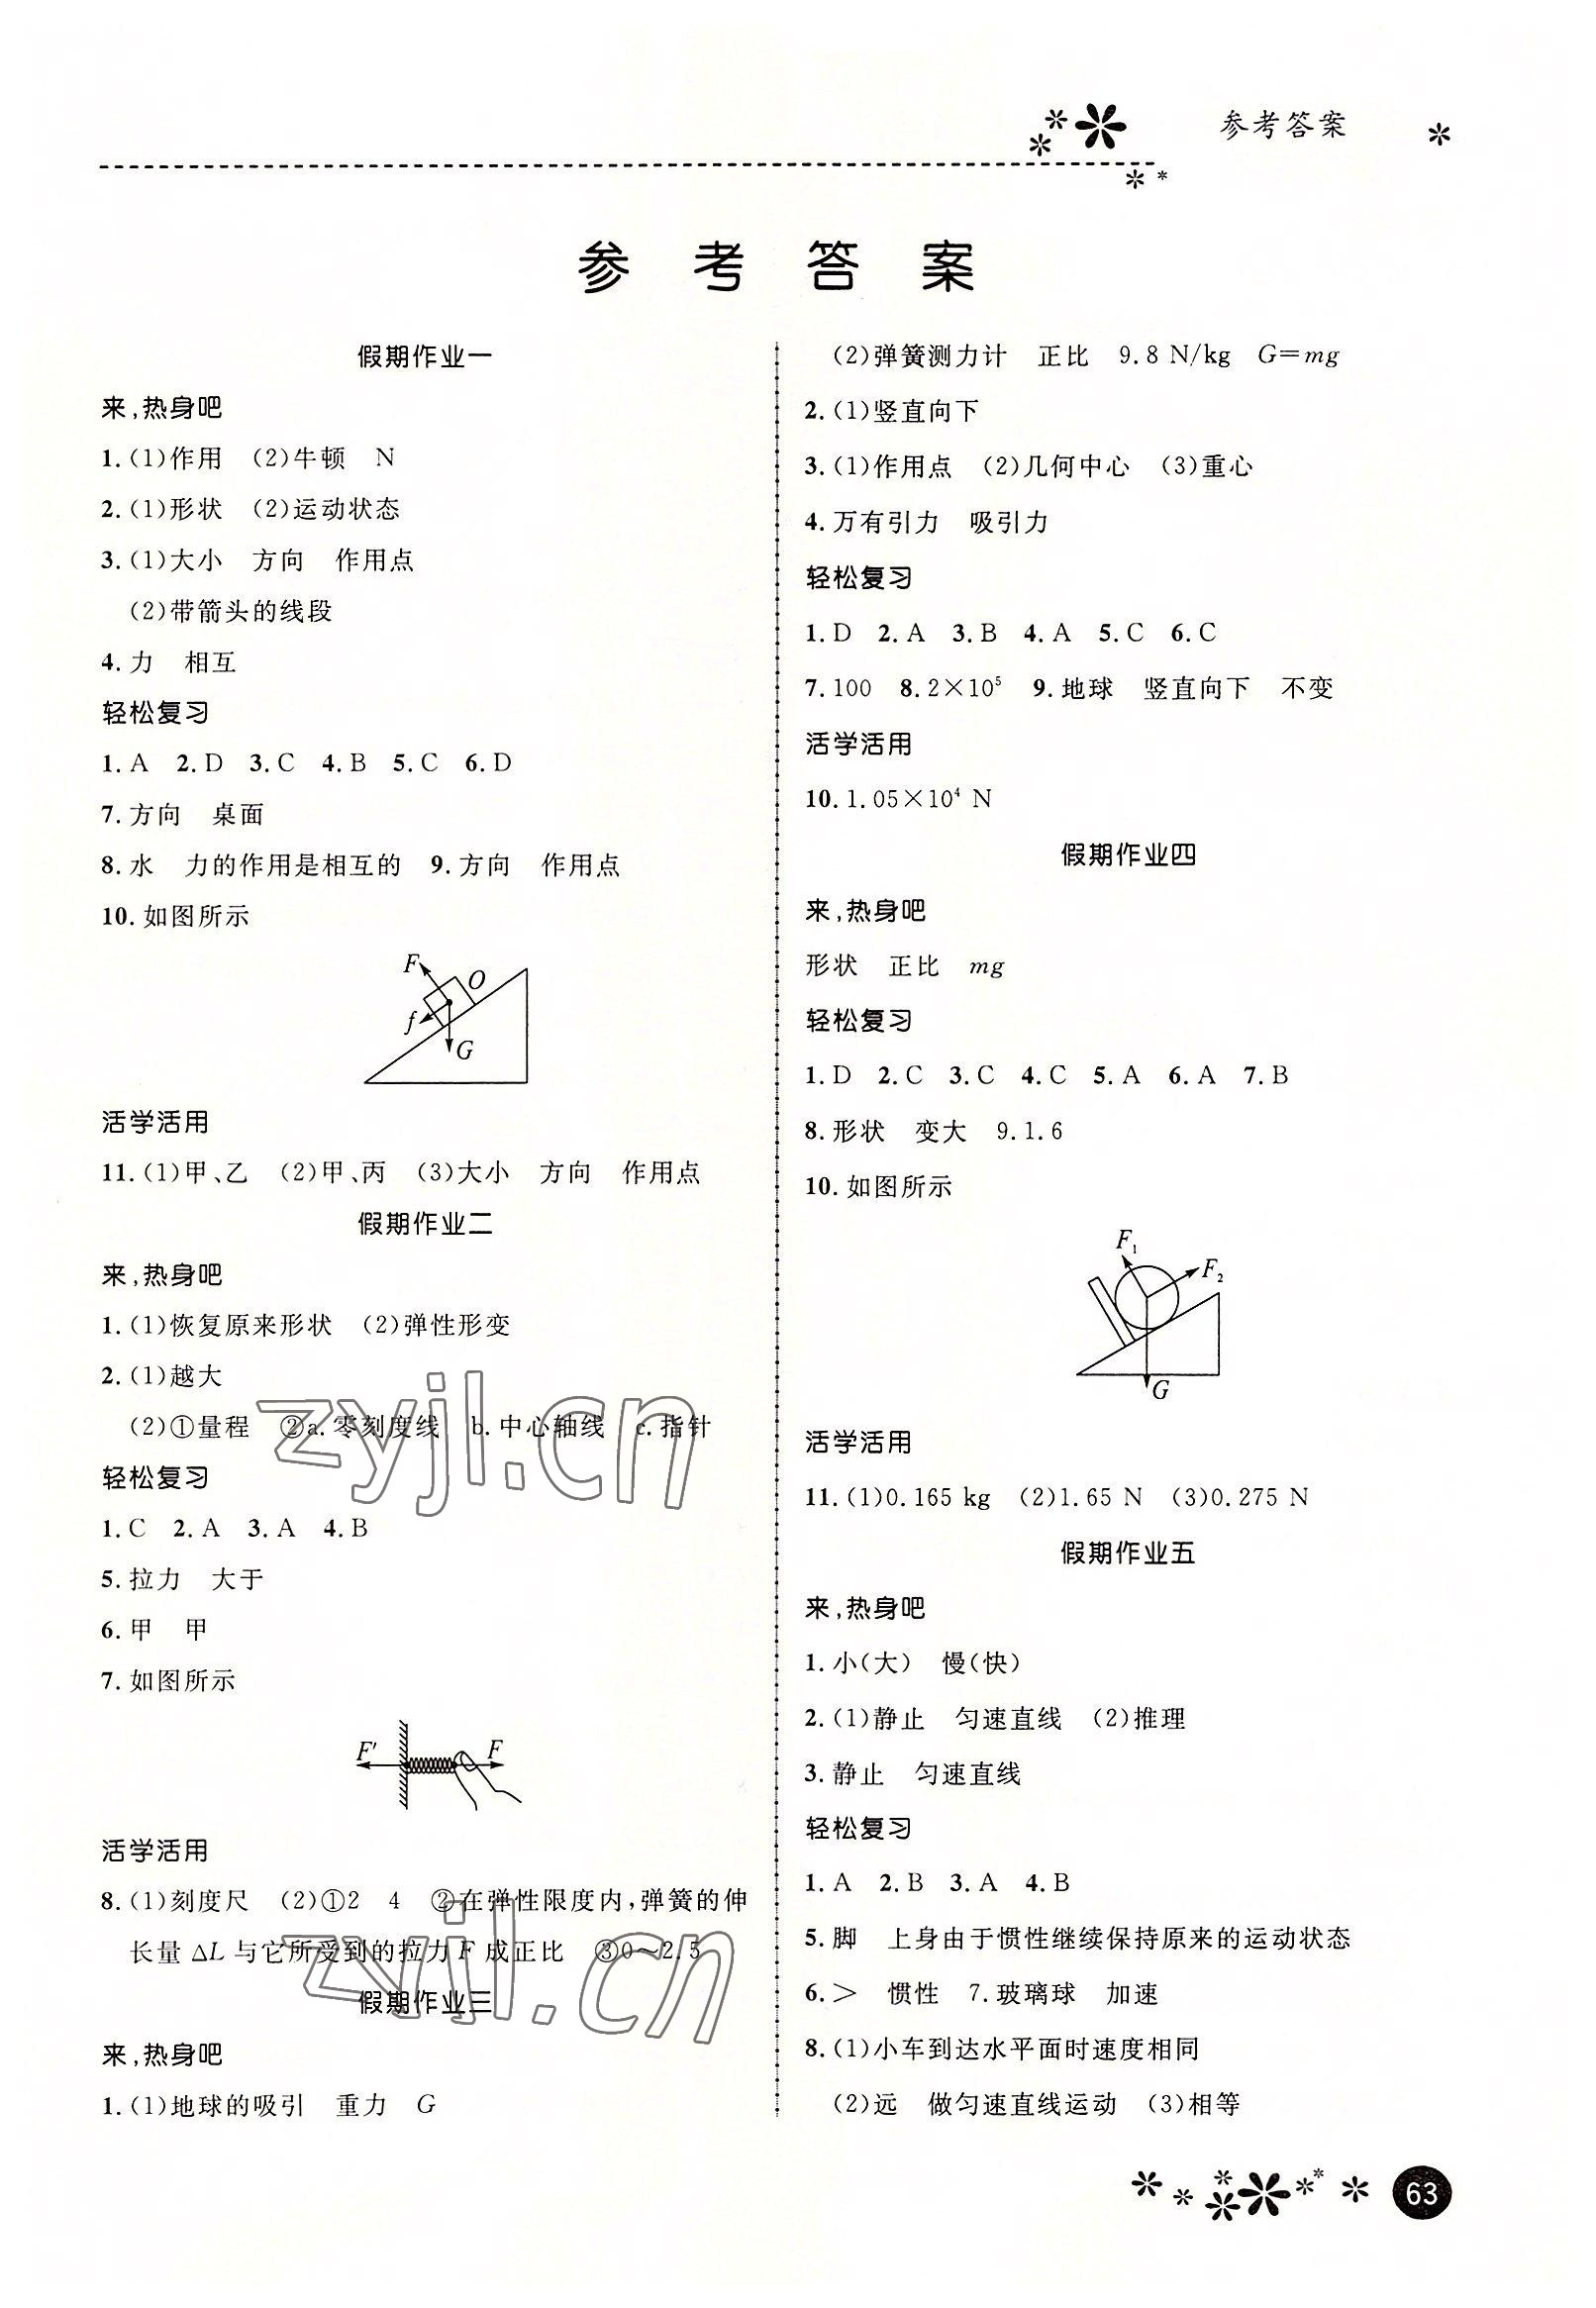 参考答案
参考答案
假期作业一
来,热身吧
1.(1)作用 (2)牛顿 N
2.(1)形状 (2)运动状态
3.(1)大小 方向 作用点
(2)带箭头的线段
4.力 相互
轻松复习
1.A 2.D 3.C 4.B 5.C 6.D
7.方向 桌面
8.水 力的作用是相互的 9.方向 作用点
10.如图所示
F
O
f
G
活学活用
11.(1)甲、乙 (2)甲、丙 (3)大小 方向 作用点
假期作业二
来,热身吧
1.(1)恢复原来形状 (2)弹性形变
2.(1)越大
(2)①量程 ②a.零刻度线 b.中心轴线 c.指针
轻松复习
1.C 2.A 3.A 4.B
5.拉力 大于
6.甲 甲
7.如图所示
F′ F
活学活用
8.(1)刻度尺 (2)①2 4 ②在弹性限度内,弹簧的伸
长量 ΔL 与它所受到的拉力 F 成正比 ③0~2.5
假期作业三
来,热身吧
1.(1)地球的吸引 重力 G
(2)弹簧测力计 正比 9.8 N/kg G=mg
2.(1)竖直向下
3.(1)作用点 (2)几何中心 (3)重心
4.万有引力 吸引力
轻松复习
1.D 2.A 3.B 4.A 5.C 6.C
7.100 8.2×10⁵ 9.地球 竖直向下 不变
活学活用
10.1.05×10⁴ N
假期作业四
来,热身吧
形状 正比 mg
轻松复习
1.D 2.C 3.C 4.C 5.A 6.A 7.B
8.形状 变大 9.1.6
10.如图所示
F₁
F₂
G
活学活用
11.(1)0.165 kg (2)1.65 N (3)0.275 N
假期作业五
来,热身吧
1.小(大) 慢(快)
2.(1)静止 匀速直线 (2)推理
3.静止 匀速直线
轻松复习
1.A 2.B 3.A 4.B
5.脚 上身由于惯性继续保持原来的运动状态
6.> 惯性 7.玻璃球 加速
8.(1)小车到达水平面时速度相同
(2)远 做匀速直线运动 (3)相等
63
zyjl.cn
zyjl.cn